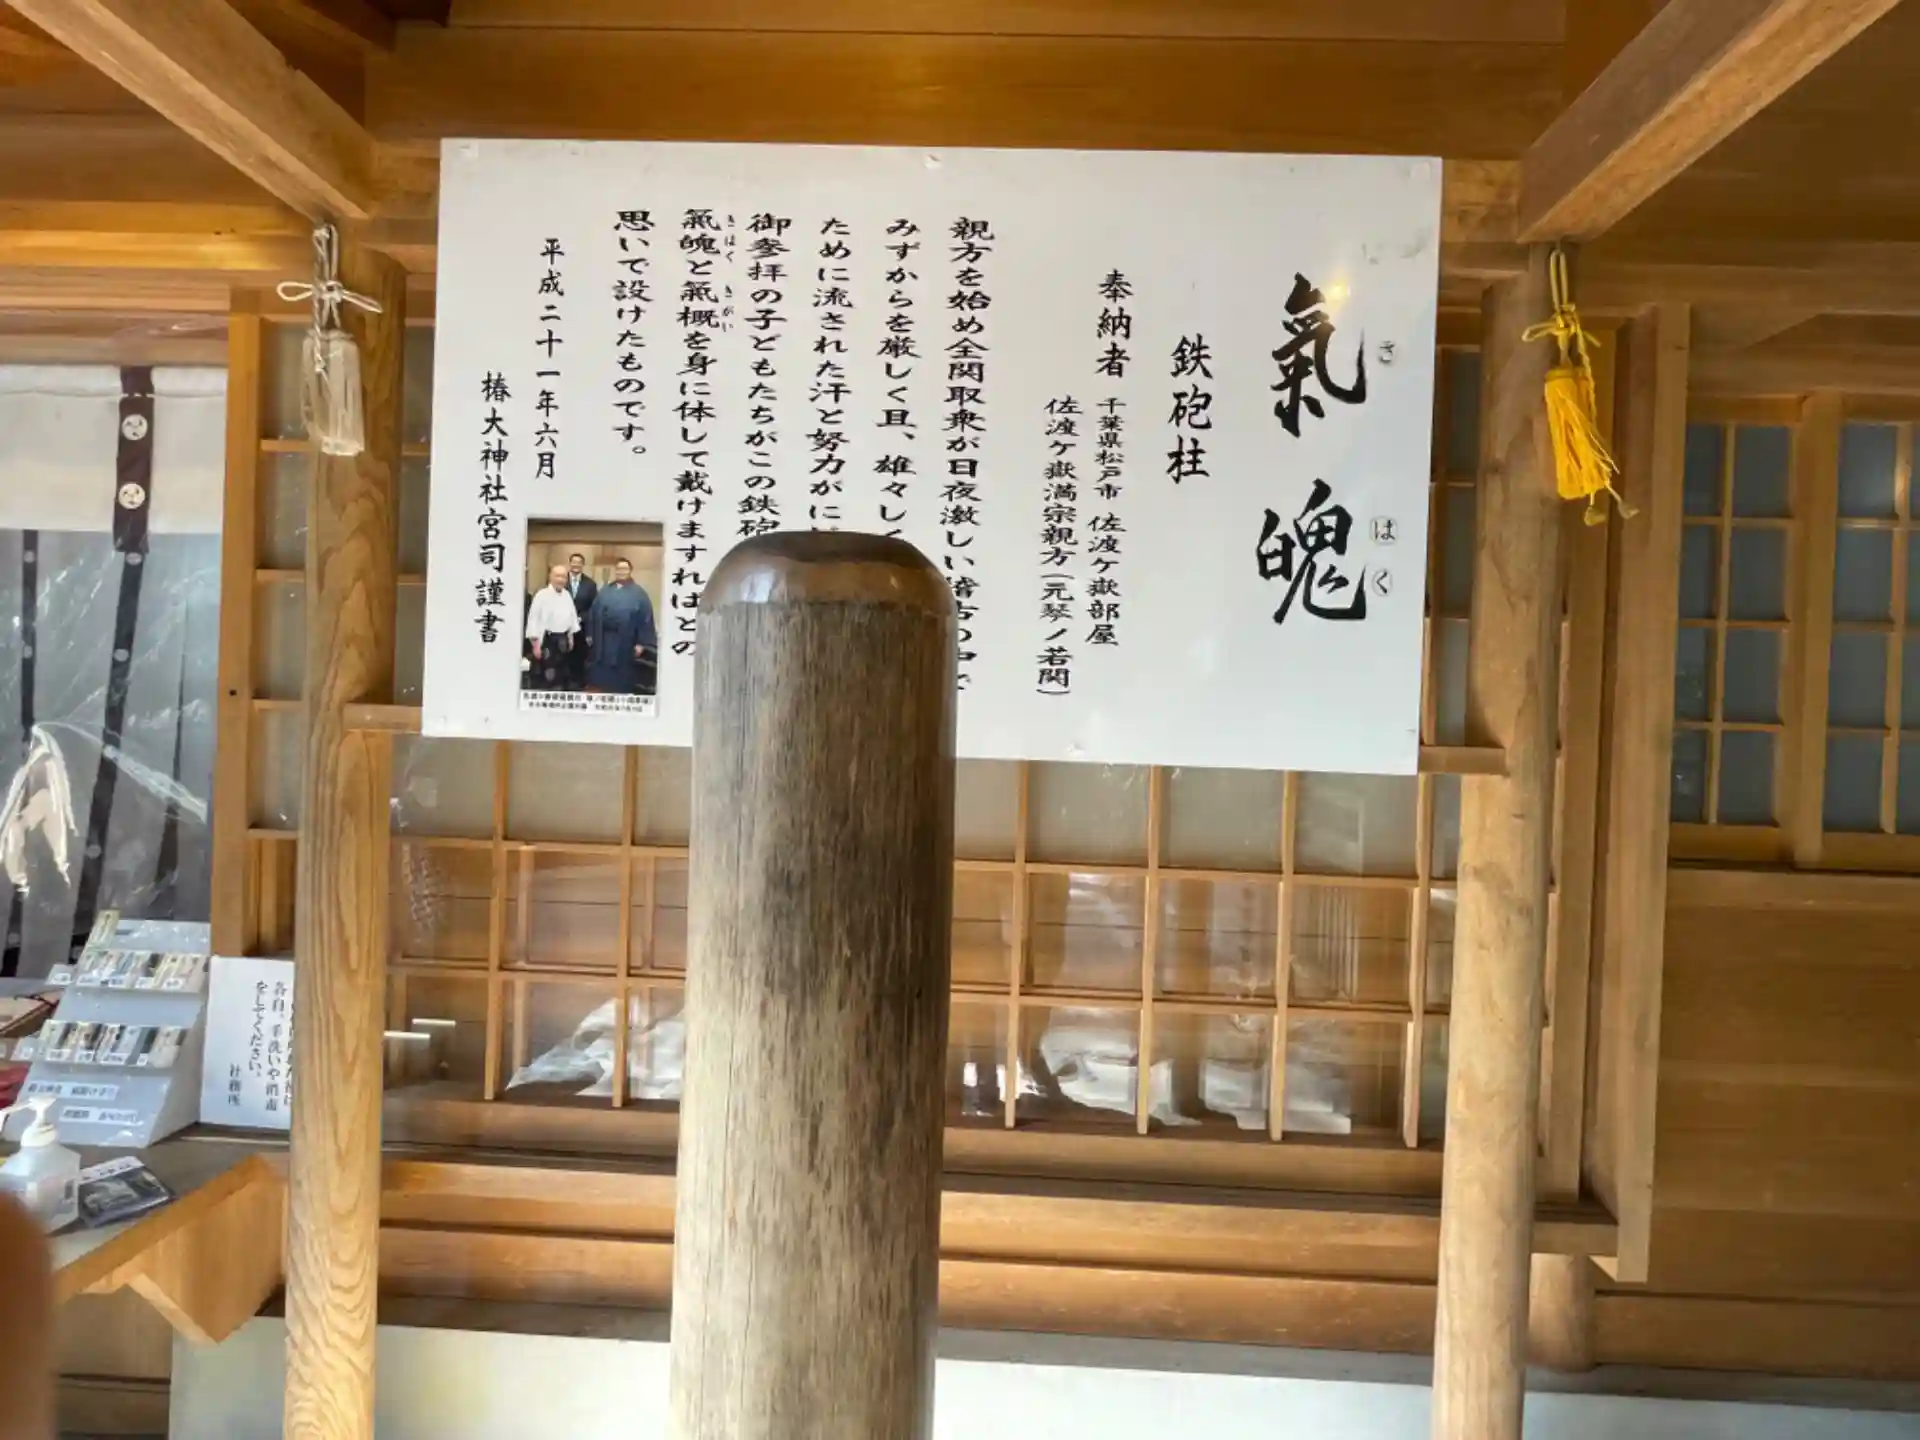 氣魄
きはく
鉄砲柱
奉納者 千葉県松戸市 佐渡ケ嶽部屋
佐渡ケ嶽満宗親方(元琴ノ若関)
親方を始め全関取衆が日夜激しい稽古の中で
みずからを厳しく且、雄々しく
ために流された汗と努力がに
御参拝の子どもたちがこの鉄砲
氣魄と氣概を身に体して戴けますればとの
きはく きがい
思いで設けたものです。
平成二十一年六月
椿大神社宮司謹書
各自、手洗いや消毒
をしてください。
社務所